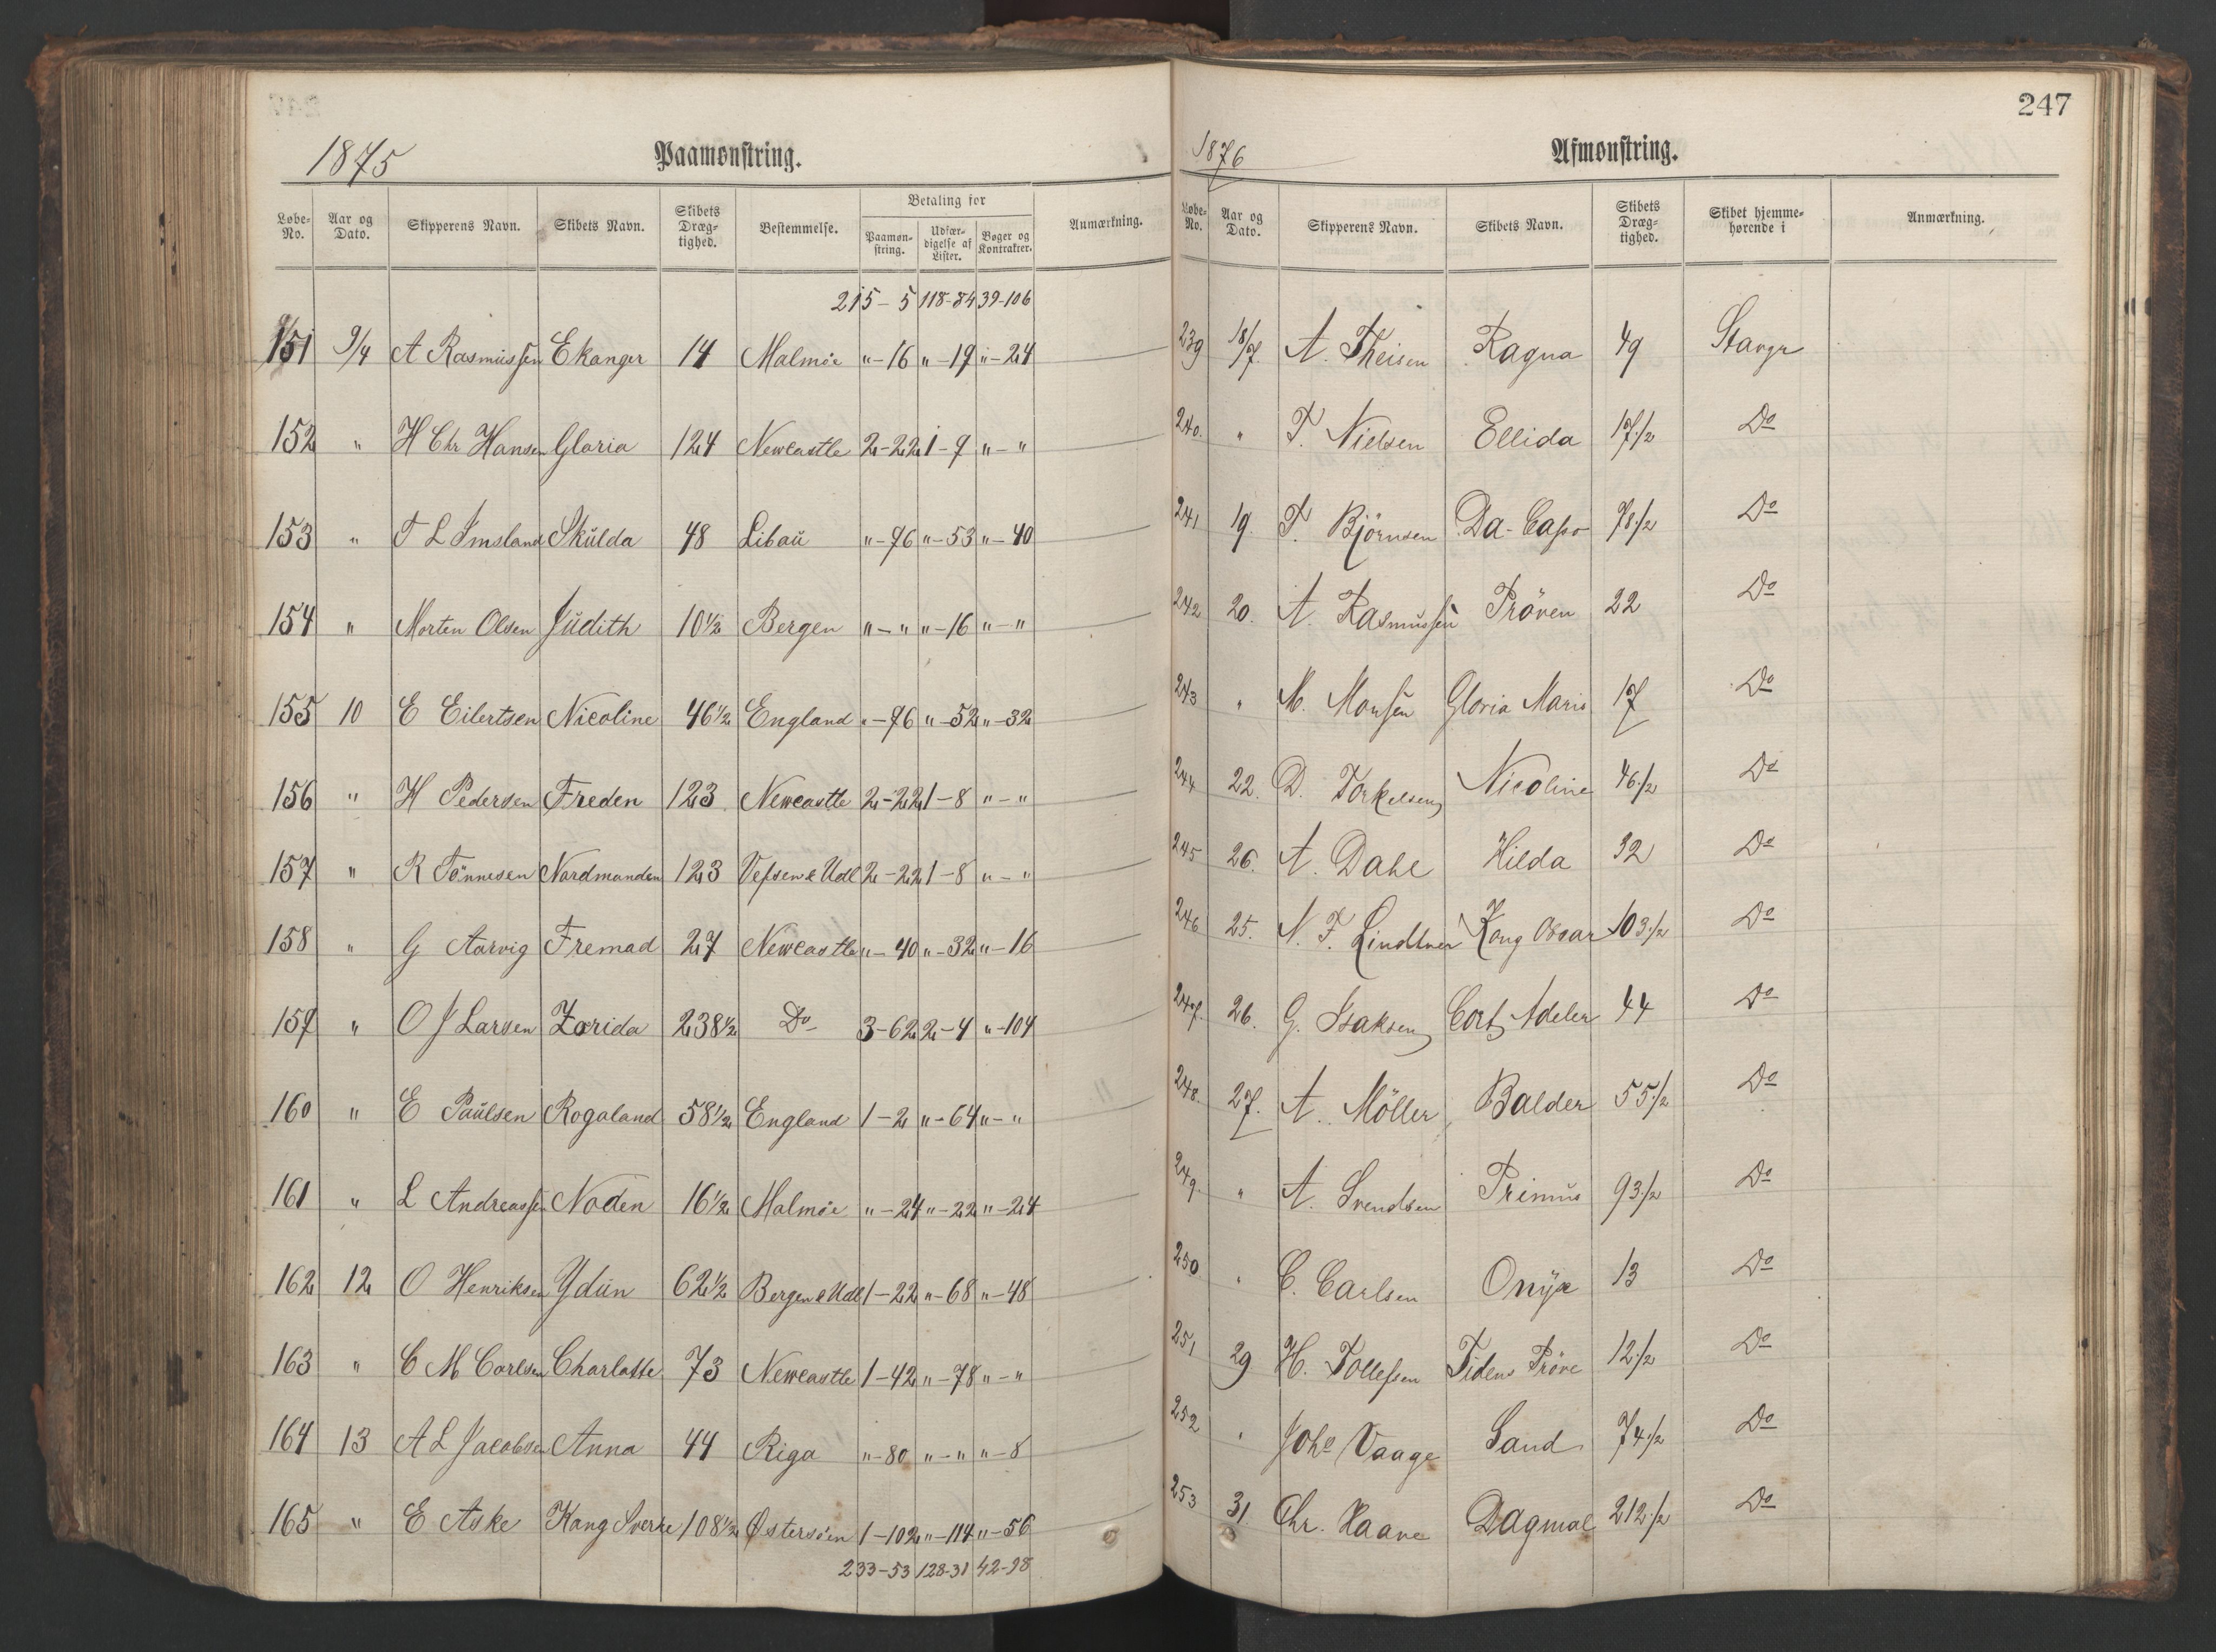 1875
Paamønstring.
Løbe-No. Aar og Dato. Skipperens Navn. Skibets Navn. Skibets Dræg-tighed. Bestemmelse. Betaling for Paamøn-string. Udfær-digelse af Lister. Bøger og Kontrakter. Anmærkning.
215-5 118-84 39-106
151 9/4 A Rasmussen Ekanger 14 Malmöe "-16 "-19 "-24
152 " H Chr Hansen Gloria 124 Newcastle 2-22 1-9 "-"
153 " T L Imsland Skulda 48 Libau "-96 "-53 "-40
154 " Morten Olsen Judith 10 1/2 Bergen "-" "-16 "-"
155 10 E Eilertsen Nicoline 46 1/2 England "-96 "-52 "-32
156 " H Pedersen Freden 123 Newcastle 2-22 1-8 "-"
157 " R Tönnesen Nordmanden 123 Vefsen & Udl 2-22 1-8 "-"
158 " G Aarvig Fremad 27 Newcastle "-40 "-32 "-16
159 " O J Larsen Zarida 238 1/2 Do 3-62 2-4 "-104
160 " E Paulsen Rogaland 58 1/2 England 1-2 "-64 "-"
161 " L Andreassen Noden 16 1/2 Malmöe "-24 "-22 "-24
162 12 O Henriksen Ydun 62 1/2 Bergen & Udl 1-22 "-68 "-48
163 " C M Carlsen Charlotte 73 Newcastle 1-42 "-78 "-"
164 13 A L Jacobsen Anna 44 Riga "-80 "-" "-8
165 " E Aske Kong Sverre 108 1/2 Østersöen 1-102 "-114 "-56
233-53 128-31 42-98
247
1876
Afmønstring.
Løbe-No. Aar og Dato. Skipperens Navn. Skibets Navn. Skibets Dræg-tighed. Skibet hjemme-hørende i Anmærkning.
239 18/7. A. Theisen Ragna 49 Stavgr
240. " T. Nielsen Ellida 17 1/2 Do
241 19. T. Björnsen Da-Capo 78 1/2 Do
242 20. A. Rasmussen Pröven 22 Do
243 " M. Monsen Gloria Maris 17 Do
244 22. D. Torkelsen Nicoline 46 1/2 Do
245 26. A. Dahl Hilda 32 Do
246 25. N. F. Lindtner Kong Oscar 103 1/2 Do
247. 26. G. Isaksen Cort Adeler 44 Do
248. 27. A. Möller Balder 55 1/2 Do
249. " A. Svendsen Primus 93 1/2 Do
250 " C. Carlsen Onyx 13 Do
251 29 H. Tollefsen Tidens Pröve 12 1/2 Do
252 " Johs Vaage Sand 74 1/2 Do
253 31. Chr. Haave Dagmar 212 1/2 Do